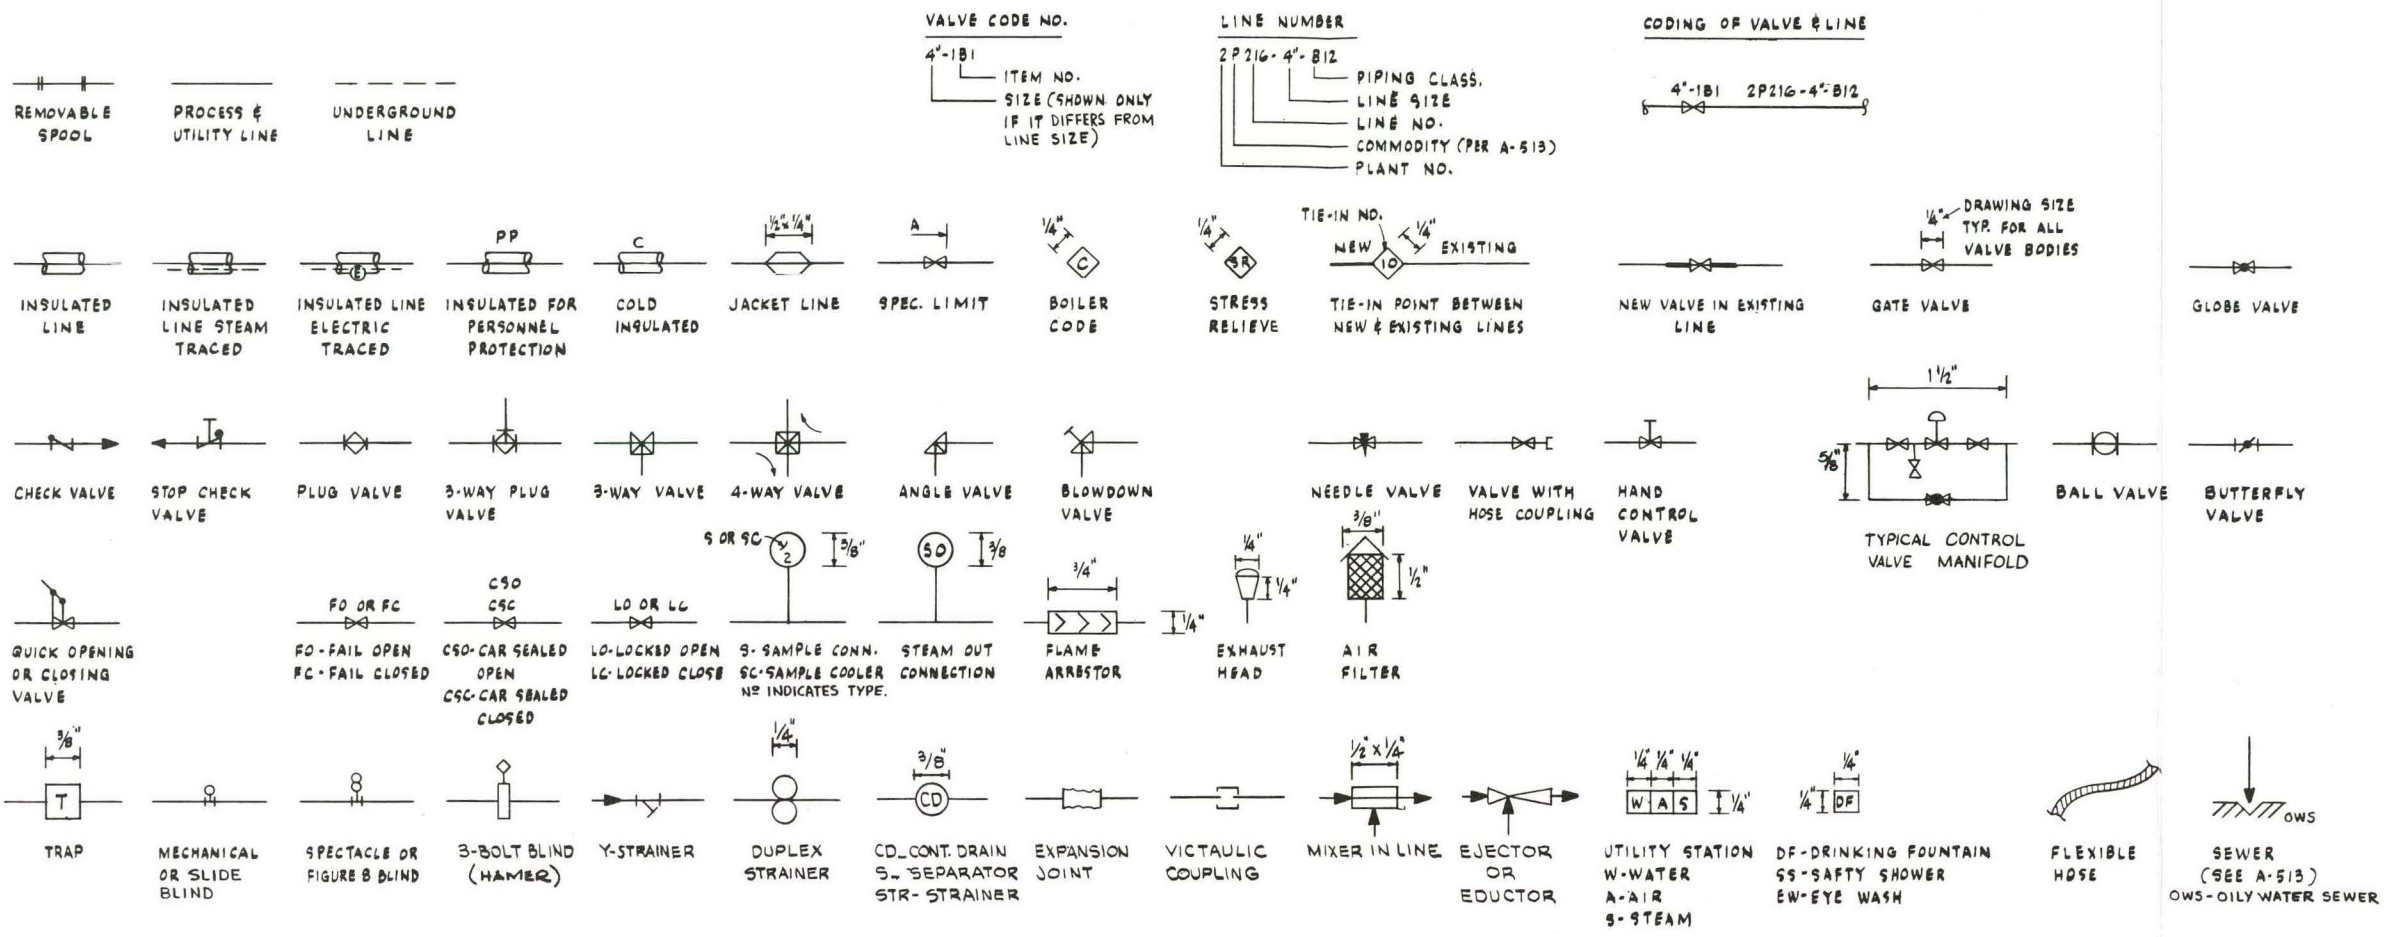 VALVE CODE NO.
4"-1B1
ITEM NO.
SIZE (SHOWN ONLY
IF IT DIFFERS FROM
LINE SIZE)
LINE NUMBER
2P216-4"-B12
PIPING CLASS.
LINE SIZE
LINE NO.
COMMODITY (PER A-513)
PLANT NO.
CODING OF VALVE & LINE
4"-1B1 2P216-4"-B12
REMOVABLE
SPOOL
PROCESS &
UTILITY LINE
UNDERGROUND
LINE
INSULATED
LINE
INSULATED
LINE STEAM
TRACED
E
INSULATED LINE
ELECTRIC
TRACED
PP
INSULATED FOR
PERSONNEL
PROTECTION
C
COLD
INSULATED
1/2" x 1/4"
JACKET LINE
A
SPEC. LIMIT
1/4"
C
BOILER
CODE
1/4"
SR
STRESS
RELIEVE
TIE-IN NO.
1/4"
NEW
EXISTING
10
TIE-IN POINT BETWEEN
NEW & EXISTING LINES
NEW VALVE IN EXISTING
LINE
1/4"
DRAWING SIZE
TYP. FOR ALL
VALVE BODIES
GATE VALVE
GLOBE VALVE
CHECK VALVE
STOP CHECK
VALVE
PLUG VALVE
3-WAY PLUG
VALVE
3-WAY VALVE
4-WAY VALVE
ANGLE VALVE
BLOWDOWN
VALVE
NEEDLE VALVE
VALVE WITH
HOSE COUPLING
HAND
CONTROL
VALVE
1 1/2"
5/8"
TYPICAL CONTROL
VALVE MANIFOLD
BALL VALVE
BUTTERFLY
VALVE
QUICK OPENING
OR CLOSING
VALVE
FO OR FC
FO-FAIL OPEN
FC-FAIL CLOSED
CSO
CSC
CSO-CAR SEALED
OPEN
CSC-CAR SEALED
CLOSED
LO OR LC
LO-LOCKED OPEN
LC-LOCKED CLOSE
S OR SC
2
3/8"
S-SAMPLE CONN.
SC-SAMPLE COOLER
Nº INDICATES TYPE.
SO
3/8
STEAM OUT
CONNECTION
3/4"
1/4"
FLAME
ARRESTOR
1/4"
1/4"
EXHAUST
HEAD
3/8"
1/2"
AIR
FILTER
3/8"
T
TRAP
MECHANICAL
OR SLIDE
BLIND
SPECTACLE OR
FIGURE 8 BLIND
3-BOLT BLIND
(HAMER)
Y-STRAINER
1/4"
DUPLEX
STRAINER
3/8"
CD
CD_CONT. DRAIN
S_ SEPARATOR
STR- STRAINER
EXPANSION
JOINT
VICTAULIC
COUPLING
1/2" x 1/4"
MIXER IN LINE
EJECTOR
OR
EDUCTOR
1/4" 1/4" 1/4"
W A S
1/4"
UTILITY STATION
W-WATER
A-AIR
S-STEAM
1/4"
1/4"
DF
DF-DRINKING FOUNTAIN
SS-SAFTY SHOWER
EW-EYE WASH
FLEXIBLE
HOSE
OWS
SEWER
(SEE A-513)
OWS-OILY WATER SEWER